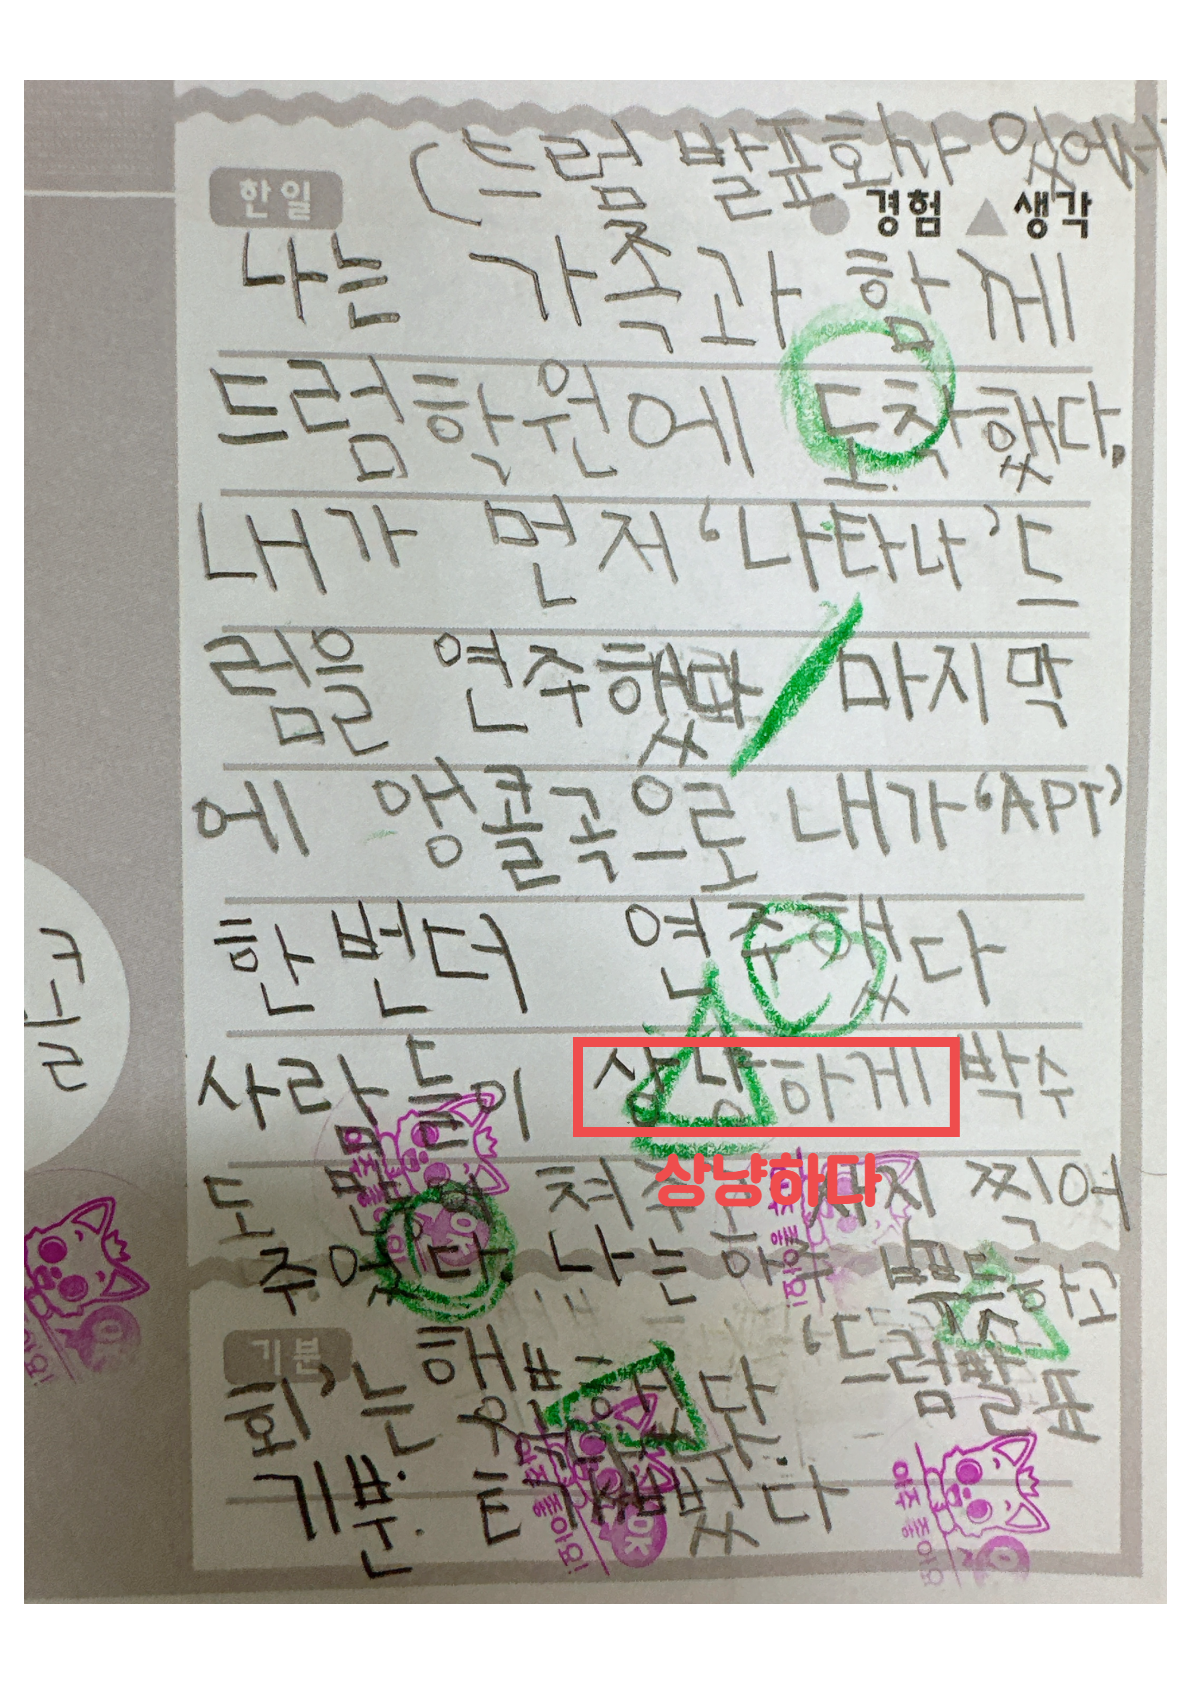 (드럼 발표회가 있어서
한일
경험 생각
나는 가족과 함께
드럼학원에 도착했다.
내가 먼저 '나타나' 드
럼을 연주했다 마지막
에 앵콜곡으로 내가 'APT'
한번더 연주했다
사람들이 상냥하게 박수
상냥하다
도 쳐주고 찍어
주었다. 나는 아주 뿌듯하고
기분
행복했다. '드럼발표
회'는
기분. 다
콜
아주 좋아요!
OK